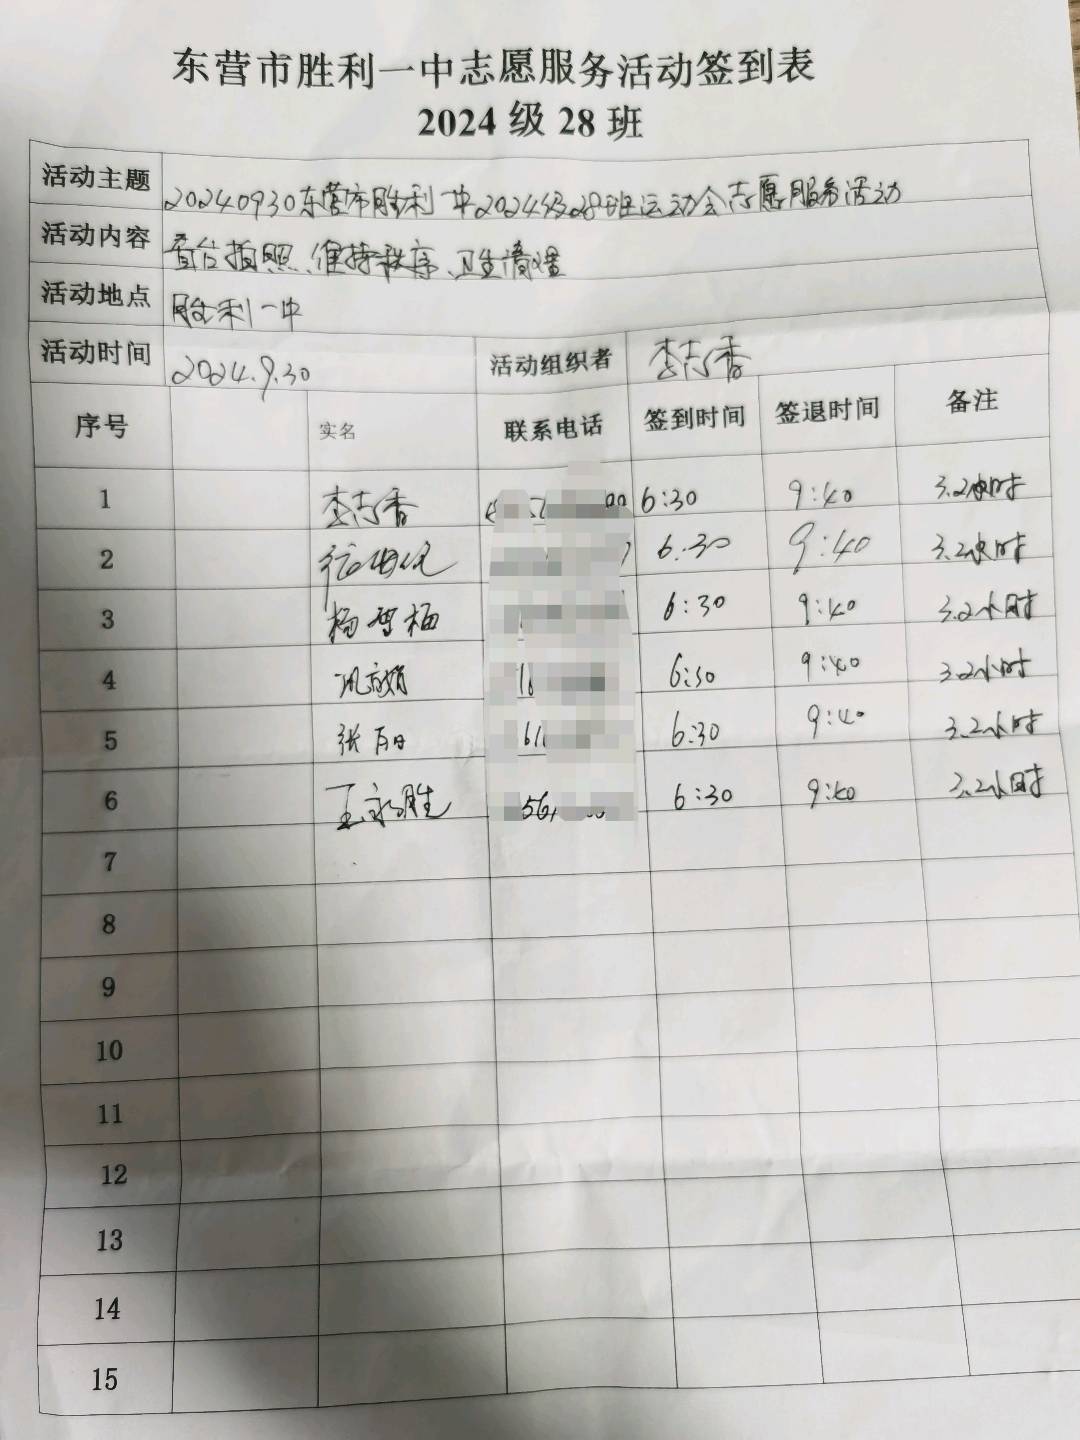 东营市胜利一中志愿服务活动签到表
2024 级 28 班
活动主题 20240930东营市胜利一中2024级28班运动会志愿服务活动
活动内容 看台拍照、维持秩序、卫生清理
活动地点 胜利一中
活动时间 2024.9.30 活动组织者 李志香
序号 实名 联系电话 签到时间 签退时间 备注
1 李志香 6:30 9:40 3.2小时
2 6:30 9:40 3.2小时
3 杨雪梅 6:30 9:40 3.2小时
4 6:30 9:40 3.2小时
5 张 6:30 9:40 3.2小时
6 王永胜 56 6:30 9:40 3.2小时
7
8
9
10
11
12
13
14
15